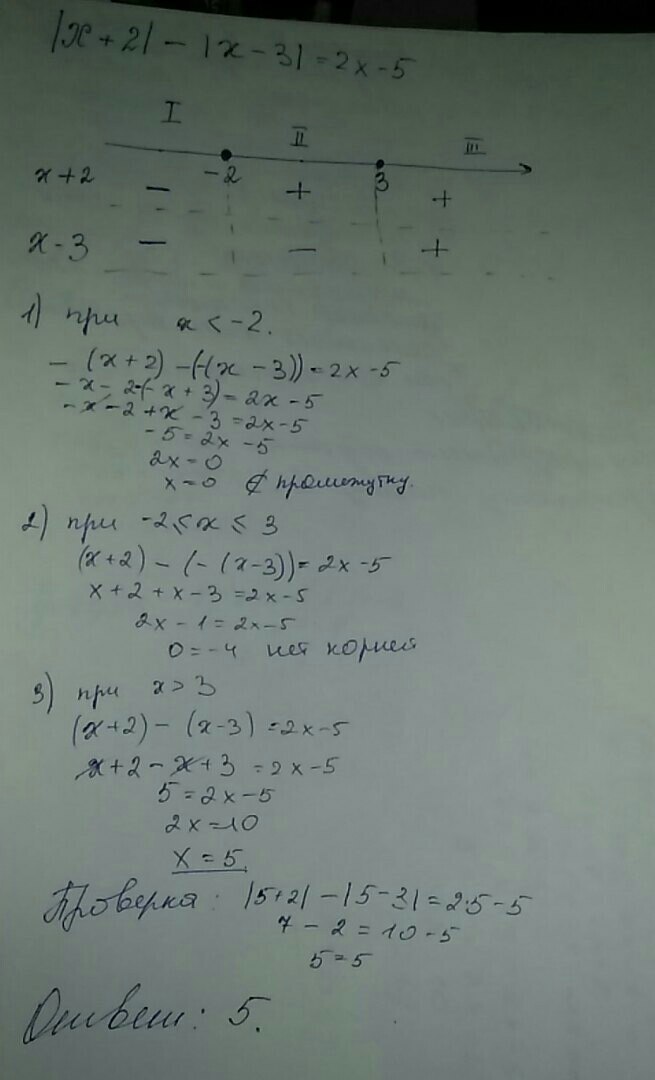 |x+2| - |x-3| = 2x-5
I II III
-2 3
x+2 - + +
x-3 - - +
1) при x < -2.
- (x+2) -(-(x-3)) = 2x-5
-x-2-(-x+3) = 2x-5
-x-2+x-3 = 2x-5
-5 = 2x-5
2x=0
x=0 ∉ промежутку.
2) при -2 ≤ x ≤ 3
(x+2) - (-(x-3)) = 2x-5
x+2+x-3 = 2x-5
2x-1 = 2x-5
0 = -4 нет корней
3) при x > 3
(x+2) - (x-3) = 2x-5
x+2-x+3 = 2x-5
5 = 2x-5
2x=10
x=5.
Проверка: |5+2| - |5-3| = 2·5-5
7-2 = 10-5
5=5
Ответ: 5.